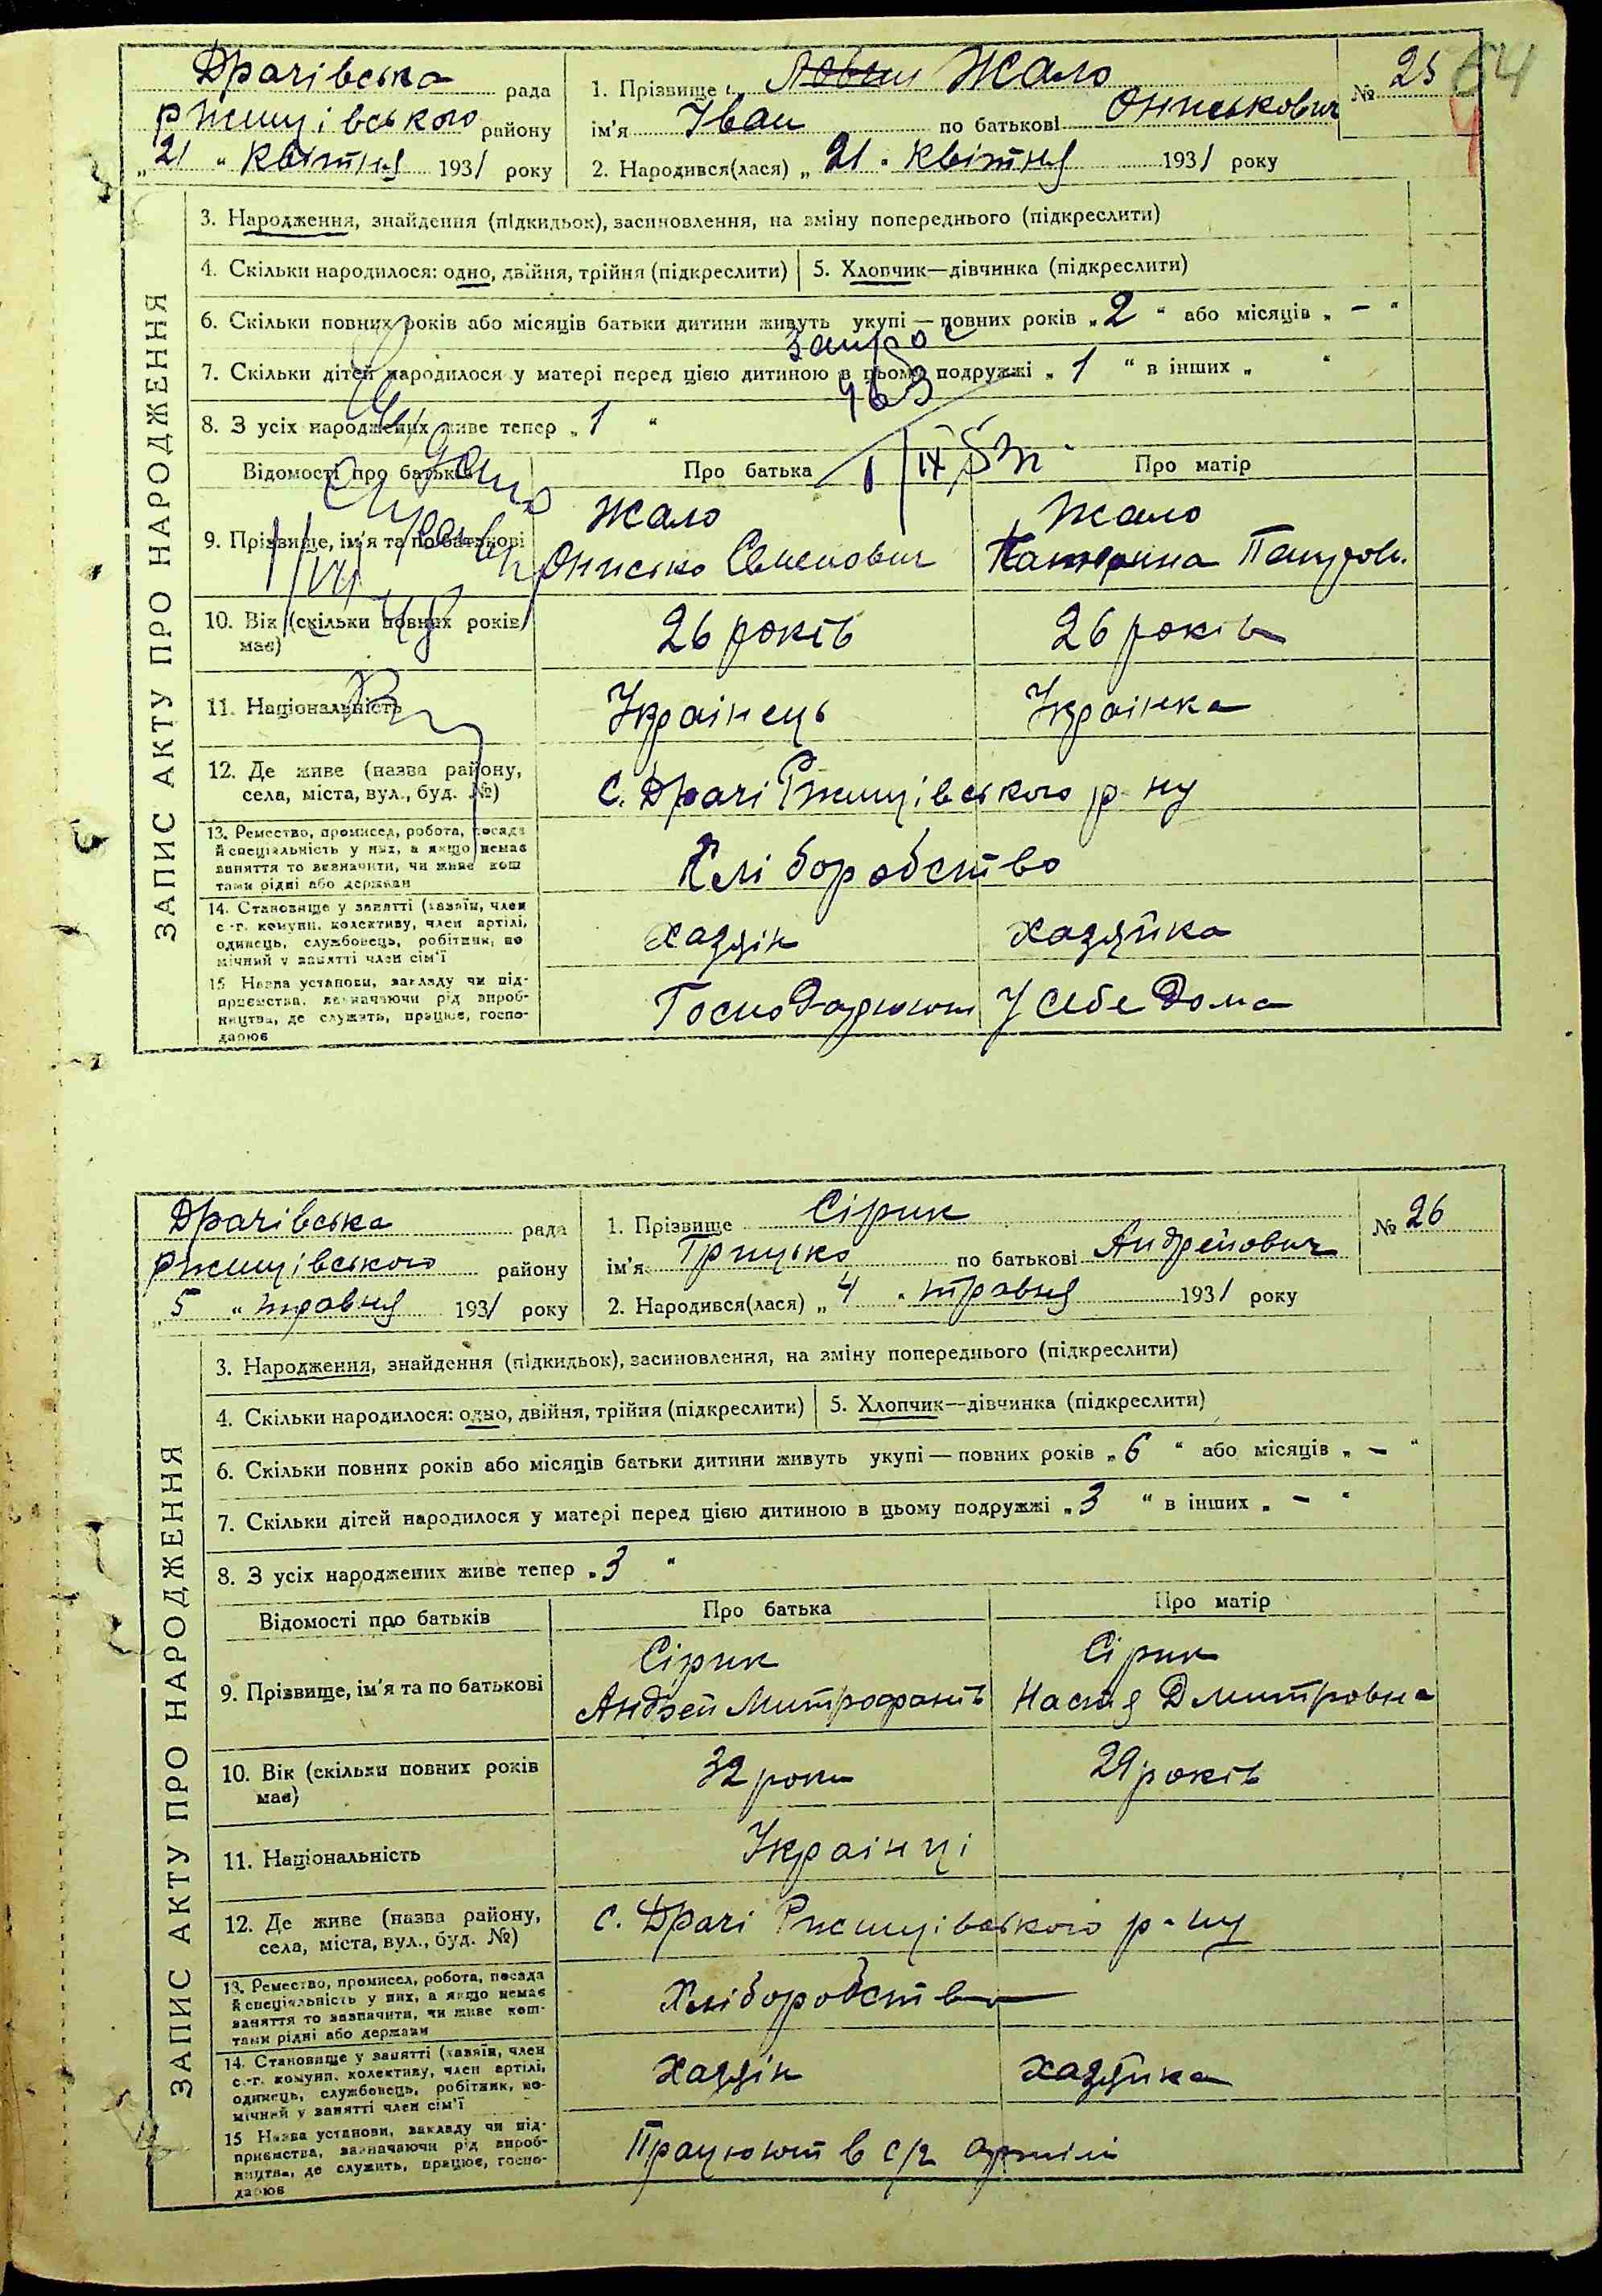 64
Драчівська рада
Ржищівського району
„21“ квітня 1931 року
1. Прізвище Жало
ім'я Іван по батькові Ониськович
№ 25
2. Народився(лася) „21“ квітня 1931 року
ЗАПИС АКТУ ПРО НАРОДЖЕННЯ
3. Народження, знайдення (підкидьок), засиновлення, на зміну попереднього (підкреслити)
4. Скільки народилося: одно, двійня, трійня (підкреслити) 5. Хлопчик—дівчинка (підкреслити)
6. Скільки повних років або місяців батьки дитини живуть укупі — повних років „2“ або місяців „–“
7. Скільки дітей народилося у матері перед цією дитиною в цьому подружжі „1“ в інших „ “
8. З усіх народжених живе тепер „1“
Відомості про батьків Про батька Про матір
9. Прізвище, ім'я та по батькові
Жало Жало
Онисько Семенович Катерина
10. Вік (скільки повних років має)
26 років 26 років
11. Національність Українець Українка
12. Де живе (назва району,
села, міста, вул., буд. №)
с. Драчі Ржищівського р-ну
13. Ремество, промисел, робота, посада
й спеціяльність у них, а якщо немає
заняття то зазначити, чи живе кош-
тами рідні або держави
Хліборобство
14. Становище у занятті (хазяїн, член
с.-г. комуни, колективу, член артілі,
одинець, службовець, робітник, по-
мічний у занятті член сім'ї
хазяїн хазяйка
15 Назва установи, закладу чи під-
приємства, зазначаючи рід вироб-
ництва, де служить, працює, госпо-
дарює
Господарюют У себе дома
Запрос
463
1/IX 53 г
Драчівська рада
Ржищівського району
„5“ травня 1931 року
1. Прізвище Сірик
ім'я Грицько по батькові Андрейович
№ 26
2. Народився(лася) „4“ травня 1931 року
ЗАПИС АКТУ ПРО НАРОДЖЕННЯ
3. Народження, знайдення (підкидьок), засиновлення, на зміну попереднього (підкреслити)
4. Скільки народилося: одно, двійня, трійня (підкреслити) 5. Хлопчик—дівчинка (підкреслити)
6. Скільки повних років або місяців батьки дитини живуть укупі — повних років „6“ або місяців „–“
7. Скільки дітей народилося у матері перед цією дитиною в цьому подружжі „3“ в інших „–“
8. З усіх народжених живе тепер „3“
Відомості про батьків Про батька Про матір
9. Прізвище, ім'я та по батькові
Сірик Сірик
Андрей Настя Дмитровна
10. Вік (скільки повних років має)
32 роки 29 років
11. Національність Українці
12. Де живе (назва району,
села, міста, вул., буд. №)
с. Драчі Ржищівського р-ну
13. Ремество, промисел, робота, посада
й спеціяльність у них, а якщо немає
заняття то зазначити, чи живе кош-
тами рідні або держави
Хліборобство
14. Становище у занятті (хазяїн, член
с.-г. комуни, колективу, член артілі,
одинець, службовець, робітник, по-
мічний у занятті член сім'ї
хазяїн хазяйка
15 Назва установи, закладу чи під-
приємства, зазначаючи рід вироб-
ництва, де служить, працює, госпо-
дарює
Працюют в с/г артілі